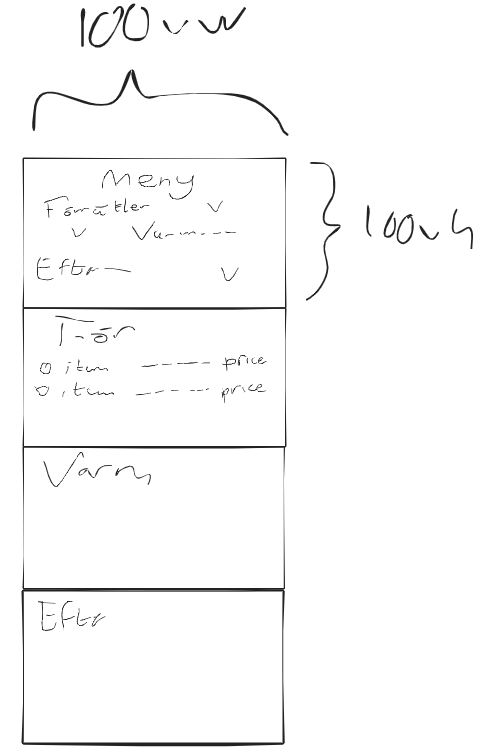 100vw
Meny
Förrätter V
V Varm----
Efter— V
100vh
För
o item ----- price
o item ----- price
Varm
Eftr